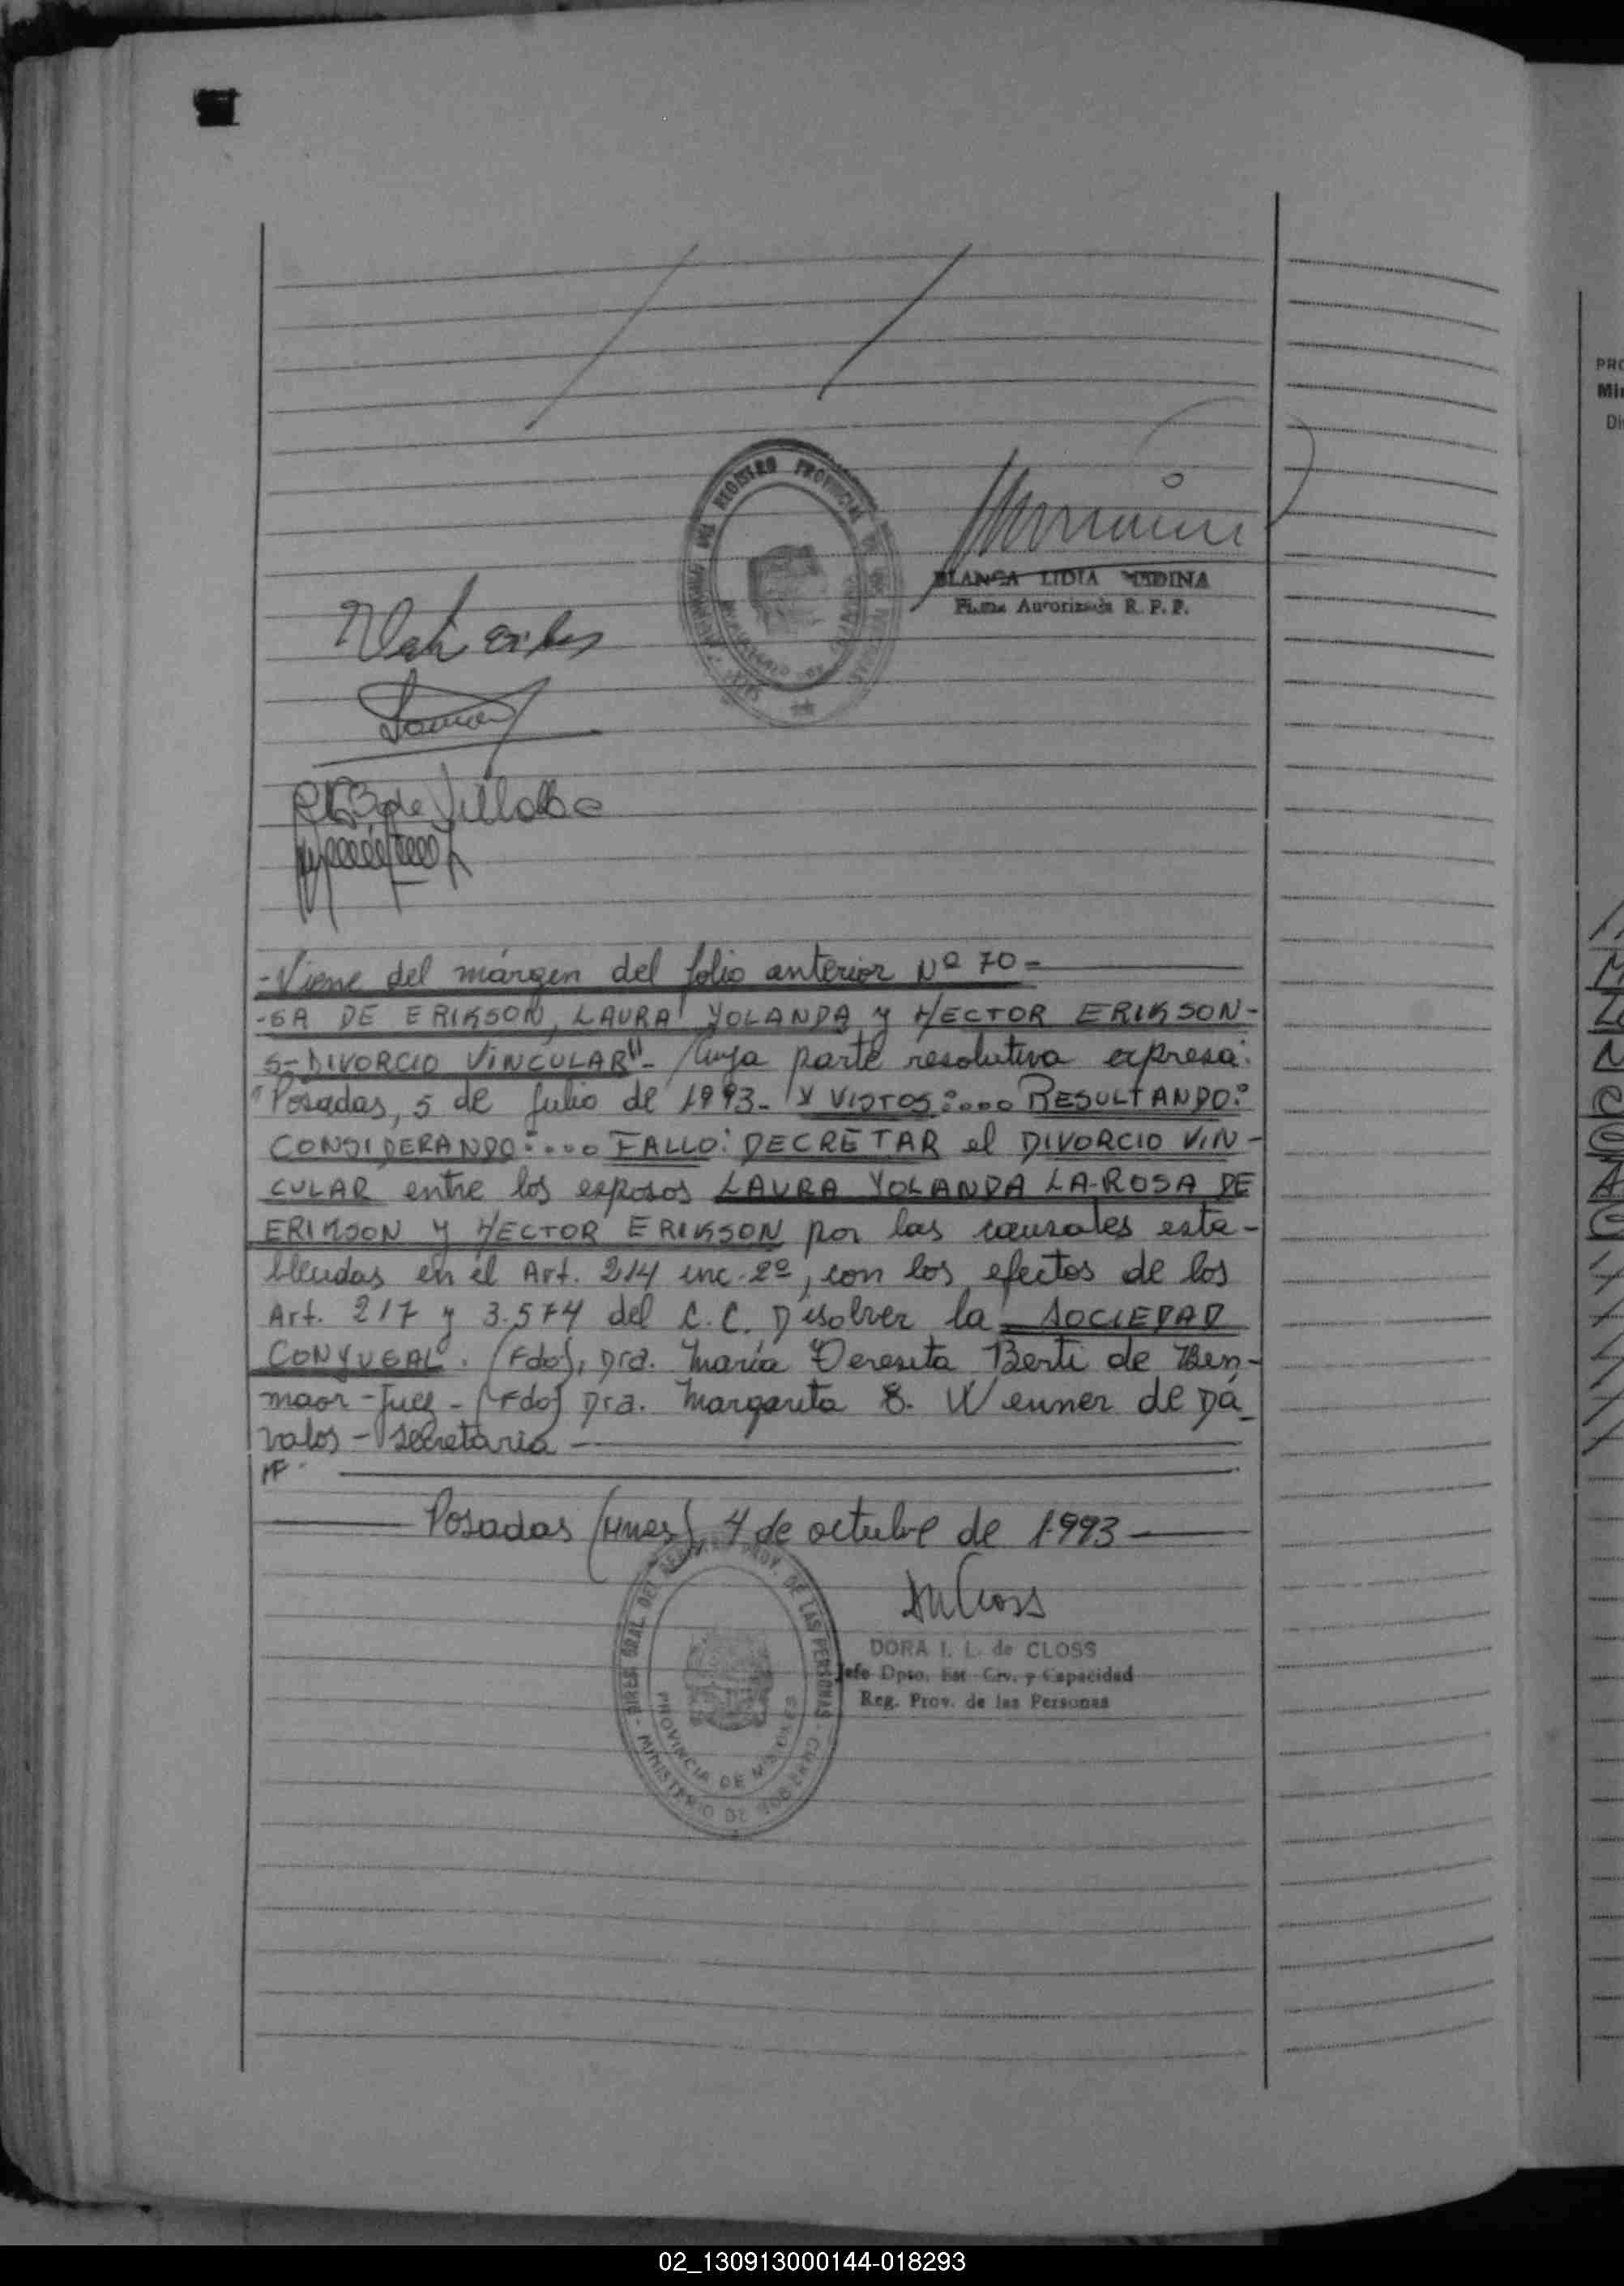 DEL REGISTRO PROVINCIAL DE LAS PERSONAS
BLANCA LIDIA MEDINA
Firma Autorizada R. P. P.
de Villalba
-Viene del márgen del folio anterior Nº 70-
-SA DE ERIKSON, LAURA YOLANDA y HECTOR ERIKSON-
S-DIVORCIO VINCULAR"- Cuya parte resolutiva expresa:
"Posadas, 5 de Julio de 1993- Y VISTOS:.... RESULTANDO:
CONSIDERANDO:.... FALLO: DECRETAR el DIVORCIO VIN-
CULAR entre los esposos LAURA YOLANDA LA-ROSA DE
ERIKSON y HECTOR ERIKSON por las causales esta-
blecidas en el Art. 214 inc. 2º, con los efectos de los
Art. 217 y 3.574 del C.C. Disolver la SOCIEDAD
CONYUGAL. (Fdo), Dra. María Teresita Berti de Ben-
maor - Juez - (Fdo) Dra. Margarita S. Wenner de Dá-
valos - Secretaria
MF.
Posadas (Mnes), 4 de octubre de 1.993
DIREC. GRAL. DEL REGISTRO PROV. DE LAS PERSONAS
PROVINCIA DE MISIONES
MINISTERIO DE GOBIERNO
DORA I. L. de CLOSS
Jefe Dpto. Est. Civ. y Capacidad
Reg. Prov. de las Personas
PRO
Min
Di
02_130913000144-018293